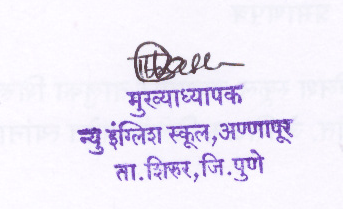 मुख्याध्यापक
न्यु इंग्लिश स्कूल,अण्णापूर
ता.शिरुर,जि.पुणे